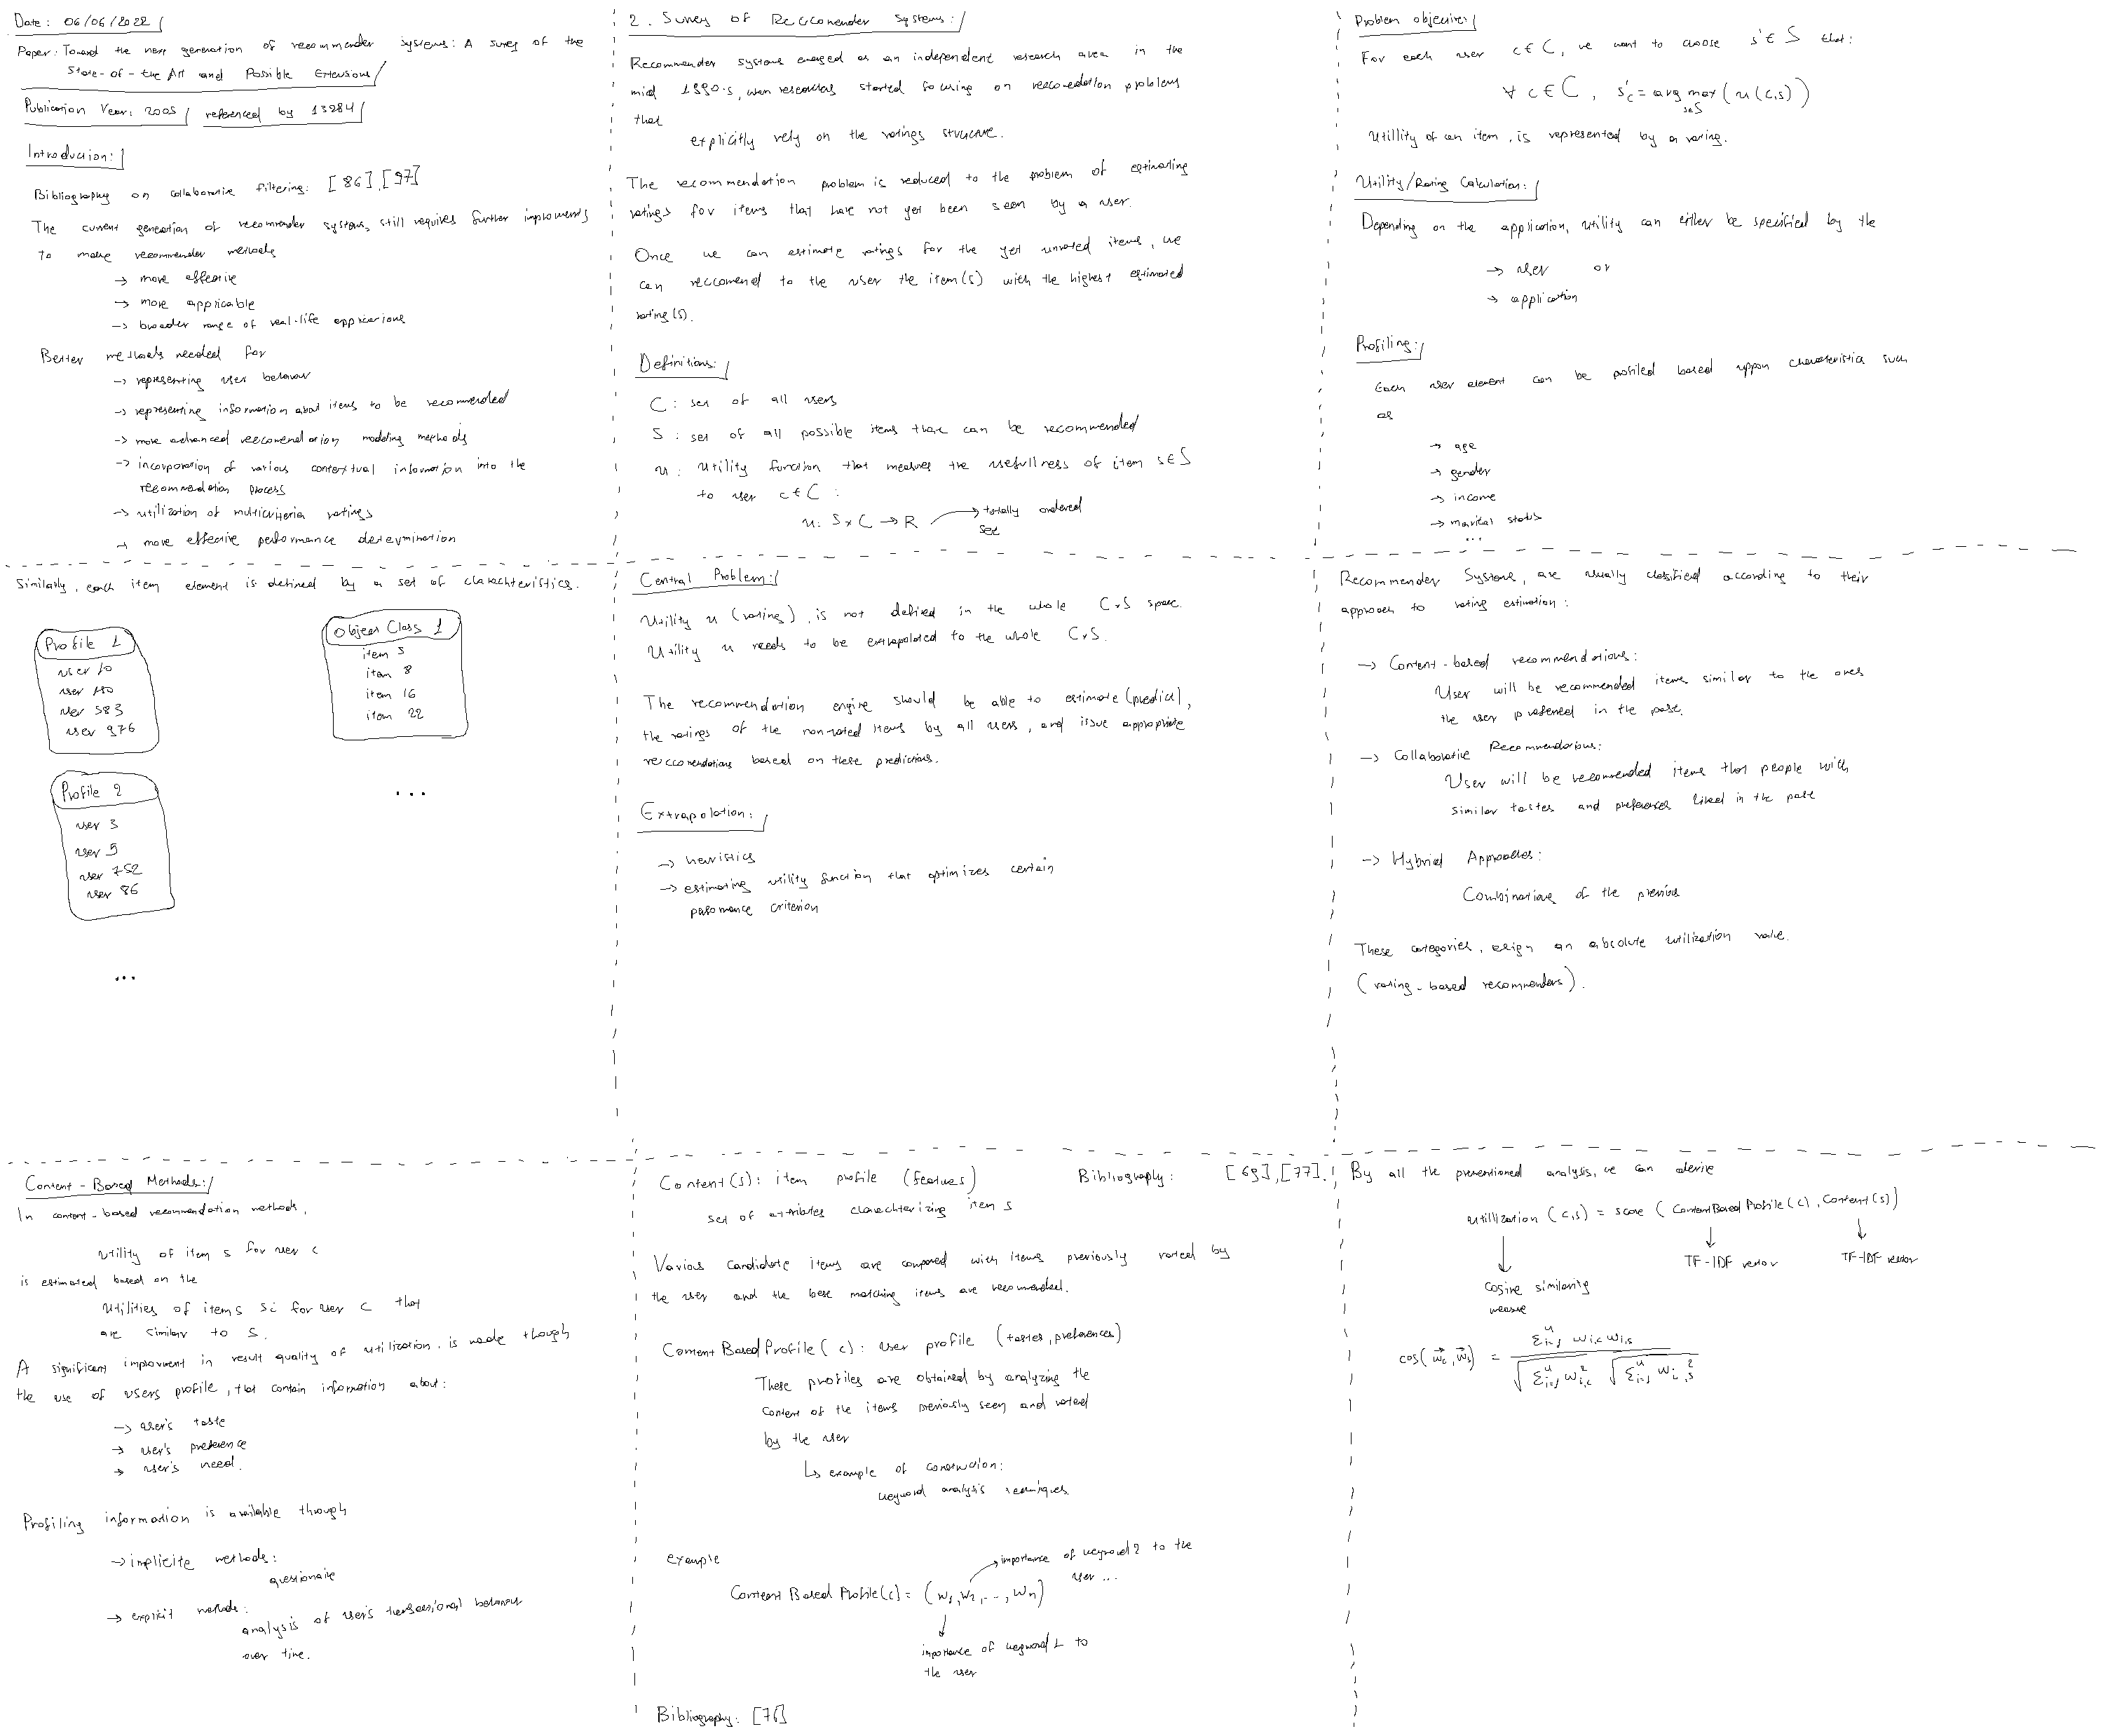 Date: 06/06/2022
Paper: Toward the next generation of recommender systems: A survey of the
State-of-the Art and Possible Extensions
Publication Year: 2005 referenced by 13284
Introduction:
Bibliography on collaborative filtering: [86],[97]
The current generation of recommender systems, still requires further improments
to make recommender methods
→ more effective
→ more applicable
→ broader range of real-life applications
Better methods needed for
→ representing user behavior
→ representing information about items to be recommended
→ more advanced reccomendation modeling methods
→ incorporation of various contextual information into the
recommendation process
→ utilization of multicriteria ratings
→ more effective performance determination
2. Survey of Reccomender Systems:
Recommender systems emerged as an independent research area in the
mid 1990's, when researchers started focusing on reccomedation problems
that
explicitly rely on the ratings structure.
The recommendation problem is reduced to the problem of estimating
ratings for items that have not yet been seen by a user.
Once we can estimate ratings for the yet unrated items, we
can reccomend to the user the item(s) with the highest estimated
rating(s).
Definitions:
C: set of all users
S: set of all possible items that can be recommended
u: utility function that measures the usefullness of item s∈S
to user c∈C:
u: S×C → R → totally ordered
set
Problem objective:
For each user c∈C, we want to choose s'∈S that:
∀ c∈C, s'c = arg max (u(c,s))
s∈S
Utillity of an item, is represented by a rating.
Utility/Rating Calculation:
Depending on the application, utility can either be specified by the
→ user or
→ application
Profiling:
Each user element can be profiled based uppon characteristics such
as
→ age
→ gender
→ income
→ marital status
...
Similarly, each item element is defined by a set of charachteristics.
Profile 1
user 10
user
user 583
user 976
Object Class 1
item 5
item 8
item 16
item 22
Profile 2
user 3
user 5
user 752
user 86
...
...
Central Problem:
Utility u (rating), is not defined in the whole C×S space.
Utility u needs to be extrapolated to the whole C×S.
The recommendation engine should be able to estimate (predict),
the ratings of the non-rated items by all users, and issue appropriate
reccomendations based on these predictions.
Extrapolation:
→ heuristics
→ estimating utility function that optimizes certain
performance criterion
Recommender Systems, are usually classified according to their
approach to rating estimation:
→ Content-based recommendations:
User will be recommended items similar to the ones
the user prefered in the past.
→ Collaborative Recommendations:
User will be recommended items that people with
similar tastes and preferences liked in the past
→ Hybrid Approaches:
Combinations of the previous
These categories, assign an absolute utilization value.
(rating-based recommenders).
Content-Based Methods:
In content-based recommendation methods,
utility of item s for user c
is estimated based on the
utilities of items si for user c that
are similar to s.
A significant improvment in result quality of utilization, is made though
the use of users profile, that contain information about:
→ user's taste
→ user's preference
→ user's need.
Profiling information is available though
→ implicite methods:
questionaire
→ explicit methods:
analysis of user's transactional behavior
over time.
Content(s): item profile (features) Bibliography: [69],[77].
set of attributes charachterizing item s
Various candidate items are compared with items previously rated by
the user and the best matching items are recomended.
Content Based Profile(c): user profile (tastes, preferences)
These profiles are obtained by analyzing the
content of the items previously seen and rated
by the user
↳ example of construction:
keyword analysis techniques
example
→ importance of keyword 2 to the
user ...
Content Based Profile(c) = (w1, w2, ..., wn)
importance of keyword 1 to
the user
Bibliography: [76]
By all the prementioned analysis, we can derive
utillization (c,s) = score (Content Based Profile(c), Content(s))
TF-IDF vector TF-IDF vector
cosine similarity
measure
cos(w⃗c, w⃗s) = Σi=1^k wi,c wi,s / √(Σi=1^k wi,c^2) √(Σi=1^k wi,s^2)